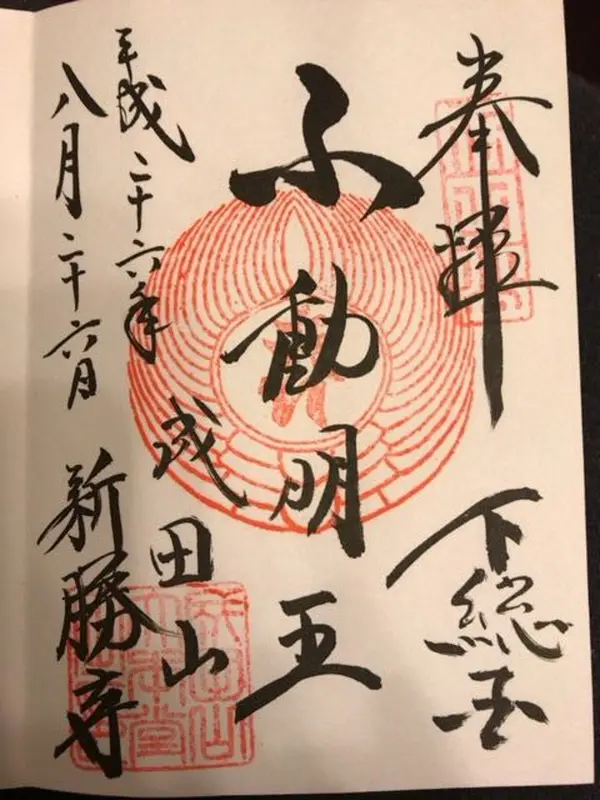 奉拝 下総国
不動明王
平成二十六年 成田山
八月二十六日 新勝寺